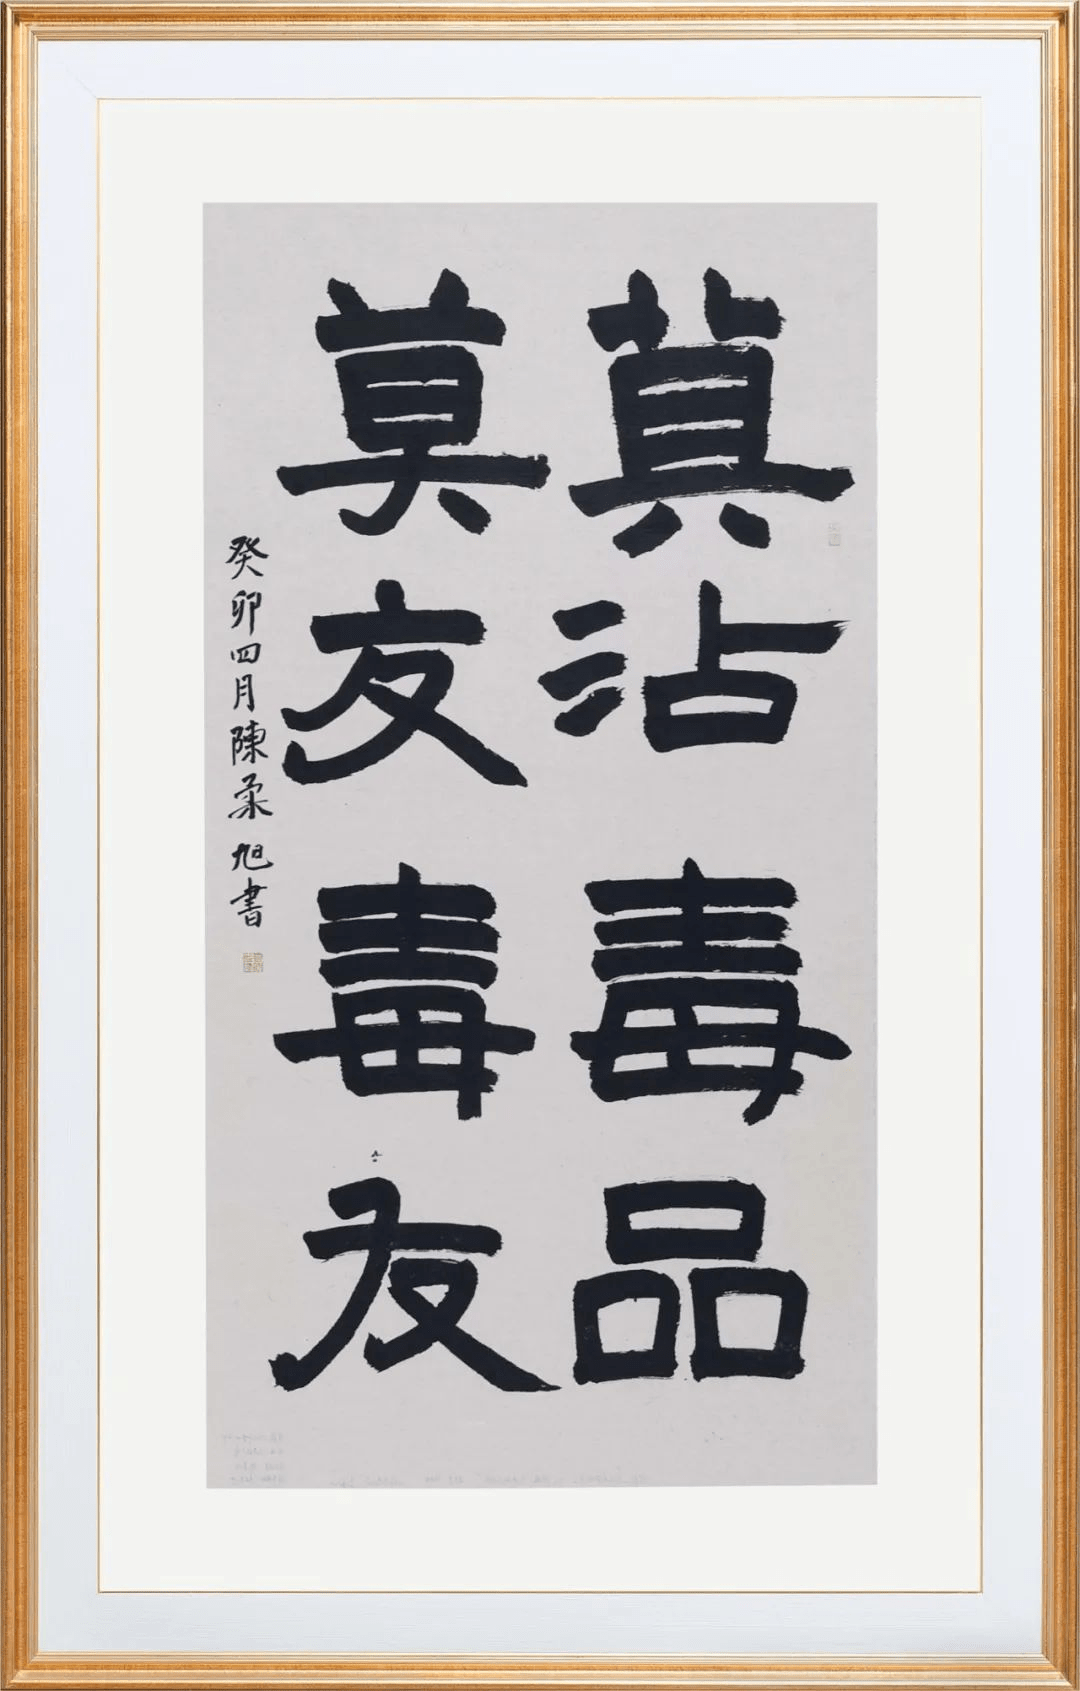 莫沾毒品
莫友毒友
癸卯四月陳柔旭書